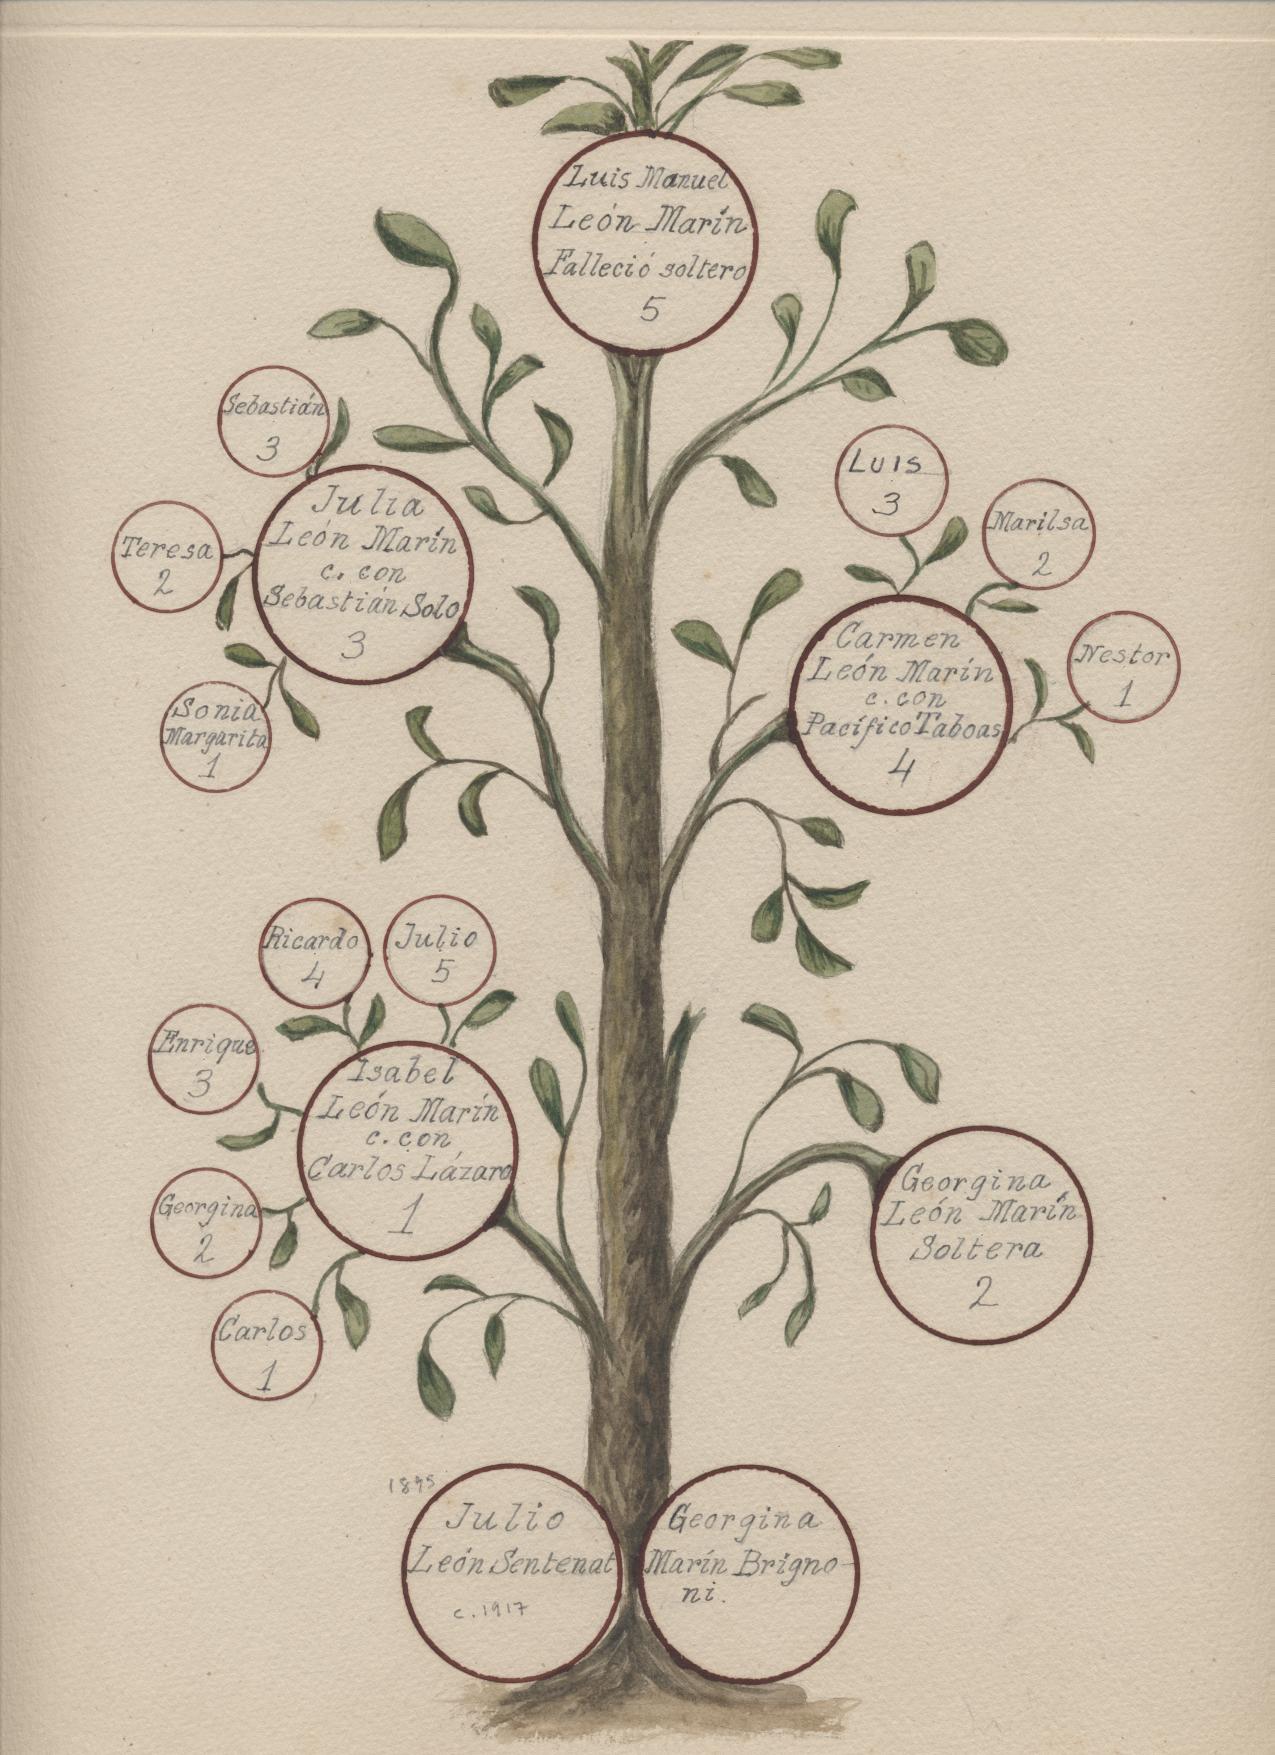 Luis Manuel
León Marín
Falleció soltero
5
Sebastián
3
Teresa
2
Sonia
Margarita
1
Julia
León Marín
c. con
Sebastián Solo
3
Luis
3
Marilsa
2
Nestor
1
Carmen
León Marín
c. con
Pacífico Taboas
4
Ricardo
4
Julio
5
Enrique
3
Georgina
2
Carlos
1
Isabel
León Marín
c. con
Carlos Lázaro
1
Georgina
León Marín
Soltera
2
1895
Julio
León Sentenat
c. 1917
Georgina
Marín Brigno-
ni.